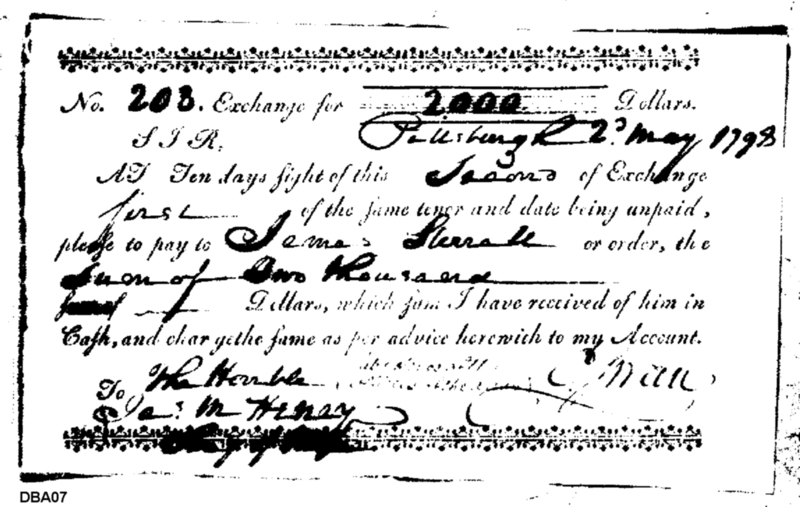 No. 203. Exchange for 2000 Dollars.
SIR, Pittsburgh 2d May 1798
AT Ten days ſight of this Second of Exchange
first of the ſame tenor and date being unpaid,
pleaſe to pay to James Sterrett or order, the
Sum of Two thousand
Dollars, which ſum I have received of him in
Caſh, and charge the ſame as per advice herewith to my Account.
To The Honble
Jas. McHenry
DBA07